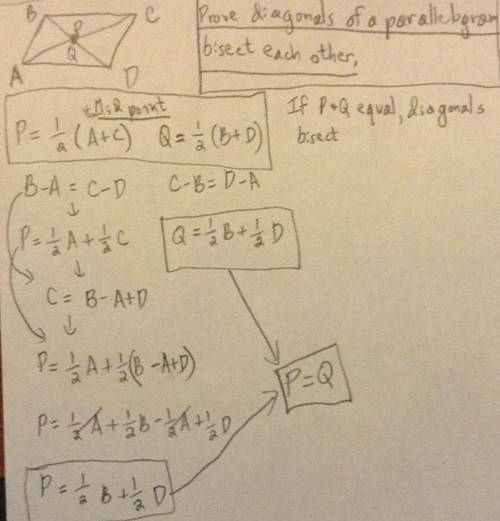 B C
P
Q
A D
Prove diagonals of a parallelogram
bisect each other.
Midpoint
P = 1/2 (A+C) Q = 1/2 (B+D)
If P+Q equal, diagonals
bisect
B-A = C-D C-B = D-A
↓
P = 1/2 A + 1/2 C
Q = 1/2 B + 1/2 D
↓
C = B-A+D
↓
P = 1/2 A + 1/2 (B-A+D)
P = Q
P = 1/2 A + 1/2 B - 1/2 A + 1/2 D
P = 1/2 B + 1/2 D